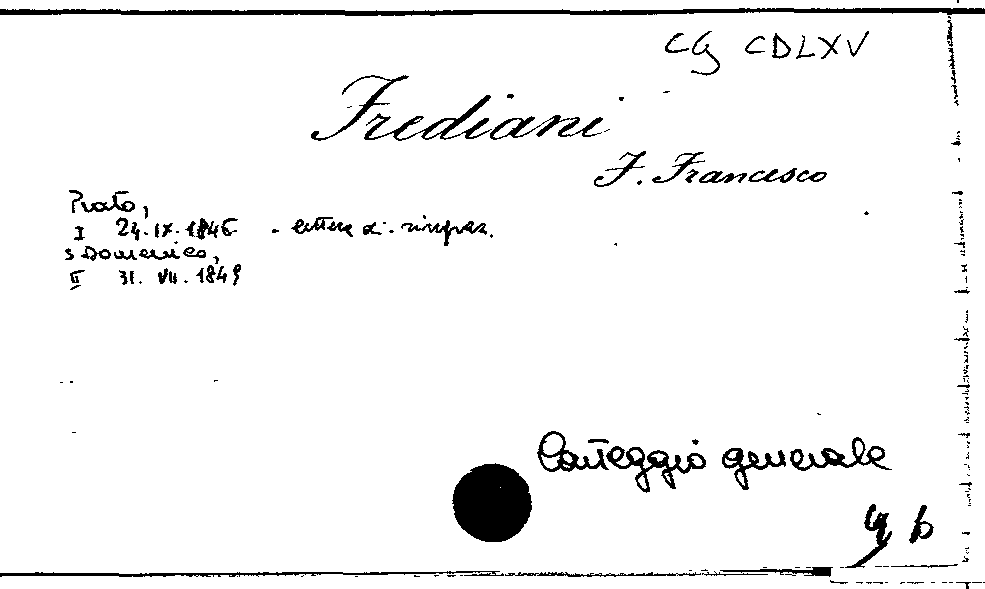 CG CDLXV
Frediani
F. Francesco
Prato,
I 24.IX.1846 - lettera di ringraz.
S Domenico,
II 31. VII. 1849
Carteggio generale